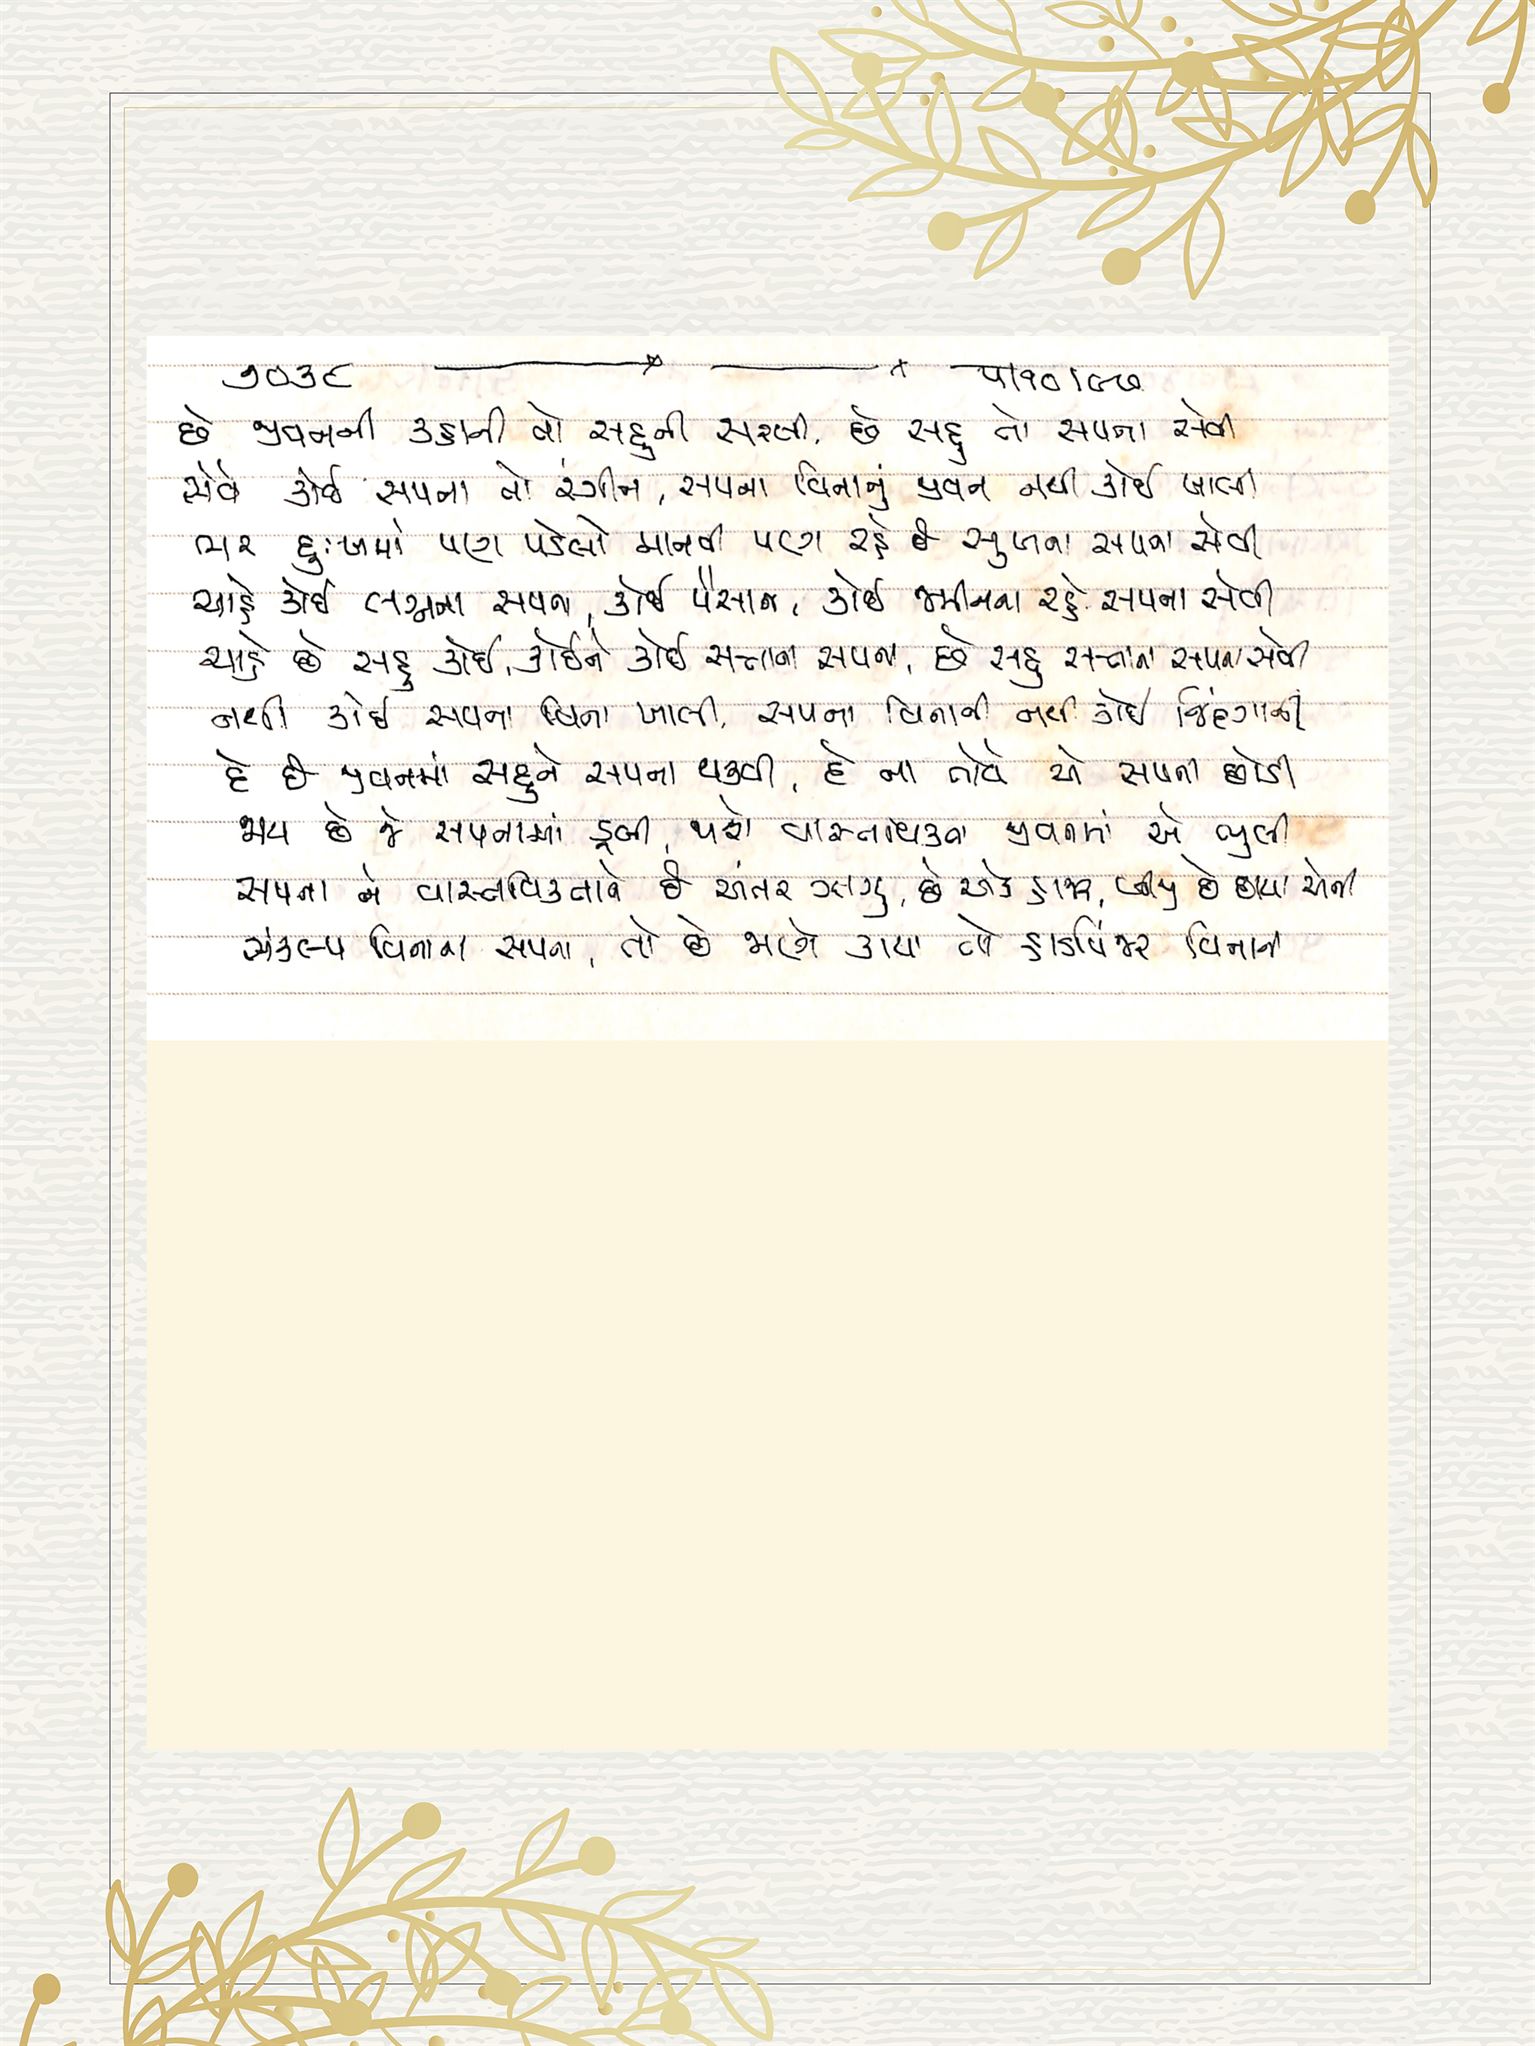 ૭૦૩૯ ૫।૧૦।૯૭
છે જીવનની કહાની તો સહુની સરખી, છે સહુ તો સપના સેવી
સેવે કોઈ સપના તો રંગીન, સપના વિનાનું જીવન નથી કોઈ ખાલી
ભર દુઃખમાં પણ પડેલો માનવી પણ રહે છે સુખના સપના સેવી
ચાહે કોઈ લગ્નના સપના, કોઈ પૈસાના, કોઈ જમીનના રહે સપના સેવી
ચાહે છે સહુ કોઈ, કોઈને કોઈ સત્તાના સપના, છે સહુ સત્તાના સપના સેવી
નથી કોઈ સપના વિના ખાલી, સપના વિનાની નથી કોઈ જિંદગાની
દે છે જીવનમાં સહુને સપના થકવી, દે ના તોયે એ સપના છોડી
જાય છે જે સપનામાં ડૂબી, જાશે વાસ્તવિકતા જીવનમાં એ ભુલી
સપના ને વાસ્તવિકતાને છે અંતર ઝાઝુ, છે એક કાયા, બીજુ છે છાયા એની
સંકલ્પ વિનાના સપના, તો છે જાણે કાયા તો હાડપિંજર વિનાની